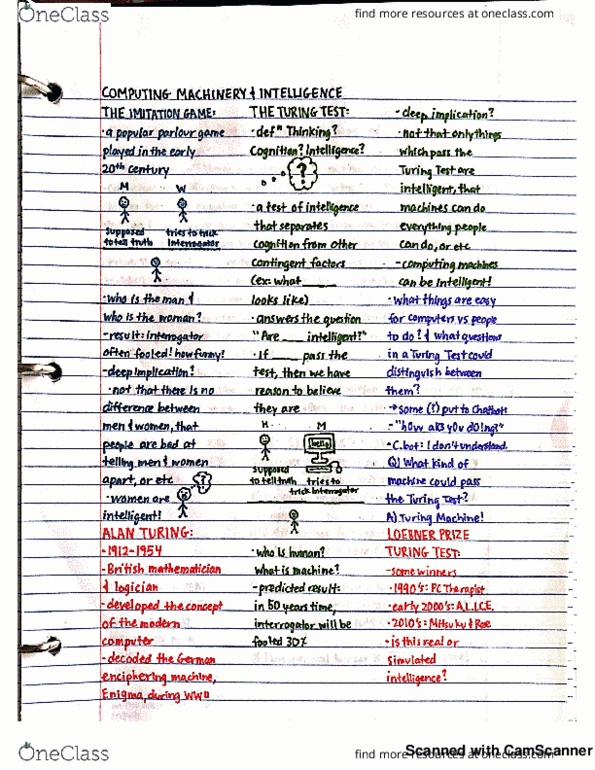 OneClass
find more resources at oneclass.com
COMPUTING MACHINERY & INTELLIGENCE
THE IMITATION GAME:
• a popular parlour game
played in the early
20th century
M W
supposed to tell truth
tries to trick interrogator
• who is the man &
who is the woman?
- result: interrogator
often fooled! how funny!
- deep implication?
• not that there is no
difference between
men & women, that
people are bad at
telling men & women
apart, or etc
?
• women are
intelligent!
ALAN TURING:
- 1912-1954
- British mathematician
& logician
- developed the concept
of the modern
computer
- decoded the German
enciphering machine,
Enigma, during WWII
THE TURING TEST:
• def" Thinking?
Cognition? Intelligence?
?
• a test of intelligence
that separates
cognition from other
contingent factors
(ex: what ____
looks like)
• answers the question
"Are ____ intelligent?"
• If ____ pass the
test, then we have
reason to believe
they are
H M
hello
supposed to tell truth
tries to trick interrogator
• who is human?
what is machine?
- predicted result:
in 50 years time,
interrogator will be
fooled 30%
- deep implication?
• not that only things
which pass the
Turing Test are
intelligent, that
machines can do
everything people
can do, or etc
- computing machines
can be intelligent!
• what things are easy
for computers vs people
to do? & what questions
in a Turing Test could
distinguish between
them?
→ some (!) put to Chatbots
- "h0vv aR3 y0v d0!ng?"
- C.bot: I don't understand.
Q) What kind of
machine could pass
the Turing Test?
A) Turing Machine!
LOEBNER PRIZE
TURING TEST:
- some winners
• 1990's: PC Therapist
• early 2000's: A.L.I.C.E.
• 2010's: Mitsuku & Rose
• is this real or
simulated
intelligence?
OneClass
find more resources at oneclass.com
Scanned with CamScanner